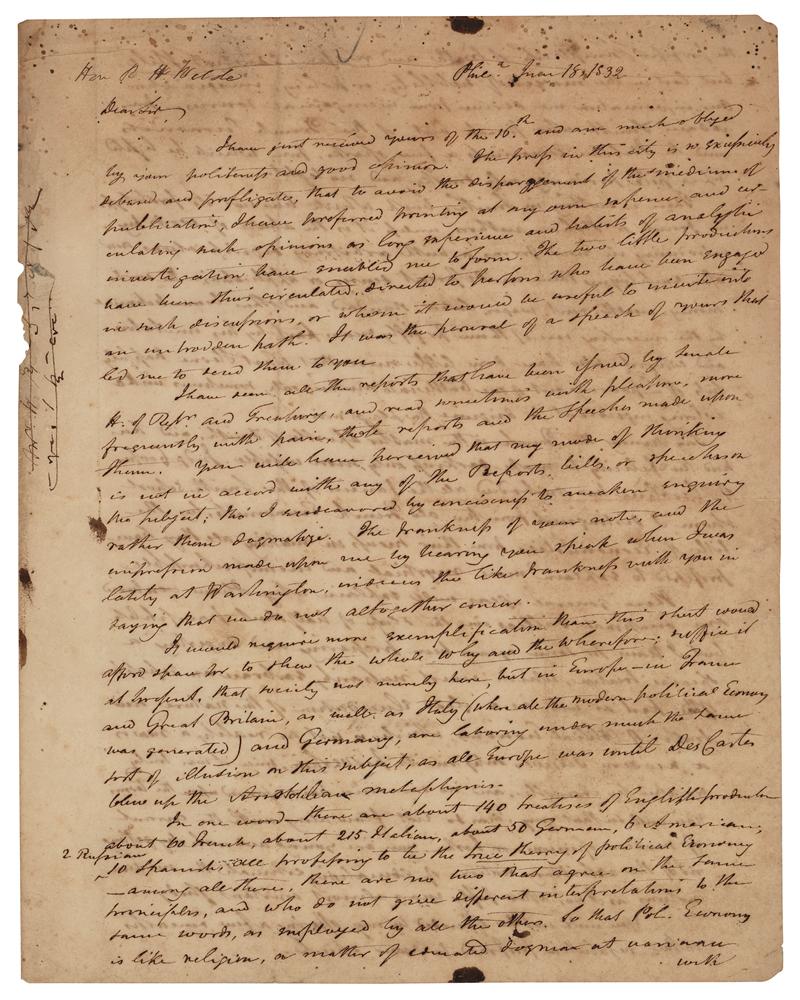 Hon R H Wilde
Phila. June 18, 1832
Dear Sir,
I have just received yours of the 16th and am much obliged
by your politeness and good opinion. The press in this city is so excessively
debased and profligate, that to avoid the disparagement of the medium of
publication, I have preferred printing at my own expence, and cir
culating such opinions as long experience and habits of analytic
investigation have enabled me to form. The two little productions
have been thus circulated, directed to persons who have been engaged
in such discussions, or whom it would be useful to invite into
an untrodden path. It was the perusal of a speech of yours that
led me to send them to you
I have seen all the reports that have been issued, by Senate
H. of Repr and Treasury, and read sometimes with pleasure, more
frequently with pain, those reports and the speeches made upon
them. You will have perceived that my mode of thinking
is not in accord with any of the Reports, bills, or speeches on
the subject; tho' I endeavored by conciseness to awaken enquiry
rather than dogmatize. The frankness of your note, and the
impression made upon me by hearing you speak when I was
lately at Washington, induces the like frankness with you in
saying that we do not altogether concur.
It would require more exemplification than this sheet would
afford space for to shew the whole why and the wherefore; suffice it
at present, that society not merely here but in Europe—in France
and Great Britain, as well as Italy (where all the modern political Economy
was generated) and Germany, are laboring under much the same
sort of illusion on this subject, as all Europe was until DesCartes
blew up the Aristotelian metaphysics.
In one word—there are about 140 treatises of English production
about 60 French, about 215 Italian, about 50 German, 6 American,
2 Russian
10 Spanish, all professing to be the true theory of political Economy
—among all these, there are no two that agree on the same
principles, and who do not give different interpretations to the
same words, as employed by all the others. So that Pol. Economy
is like religion, a matter of dogmas at variance
with